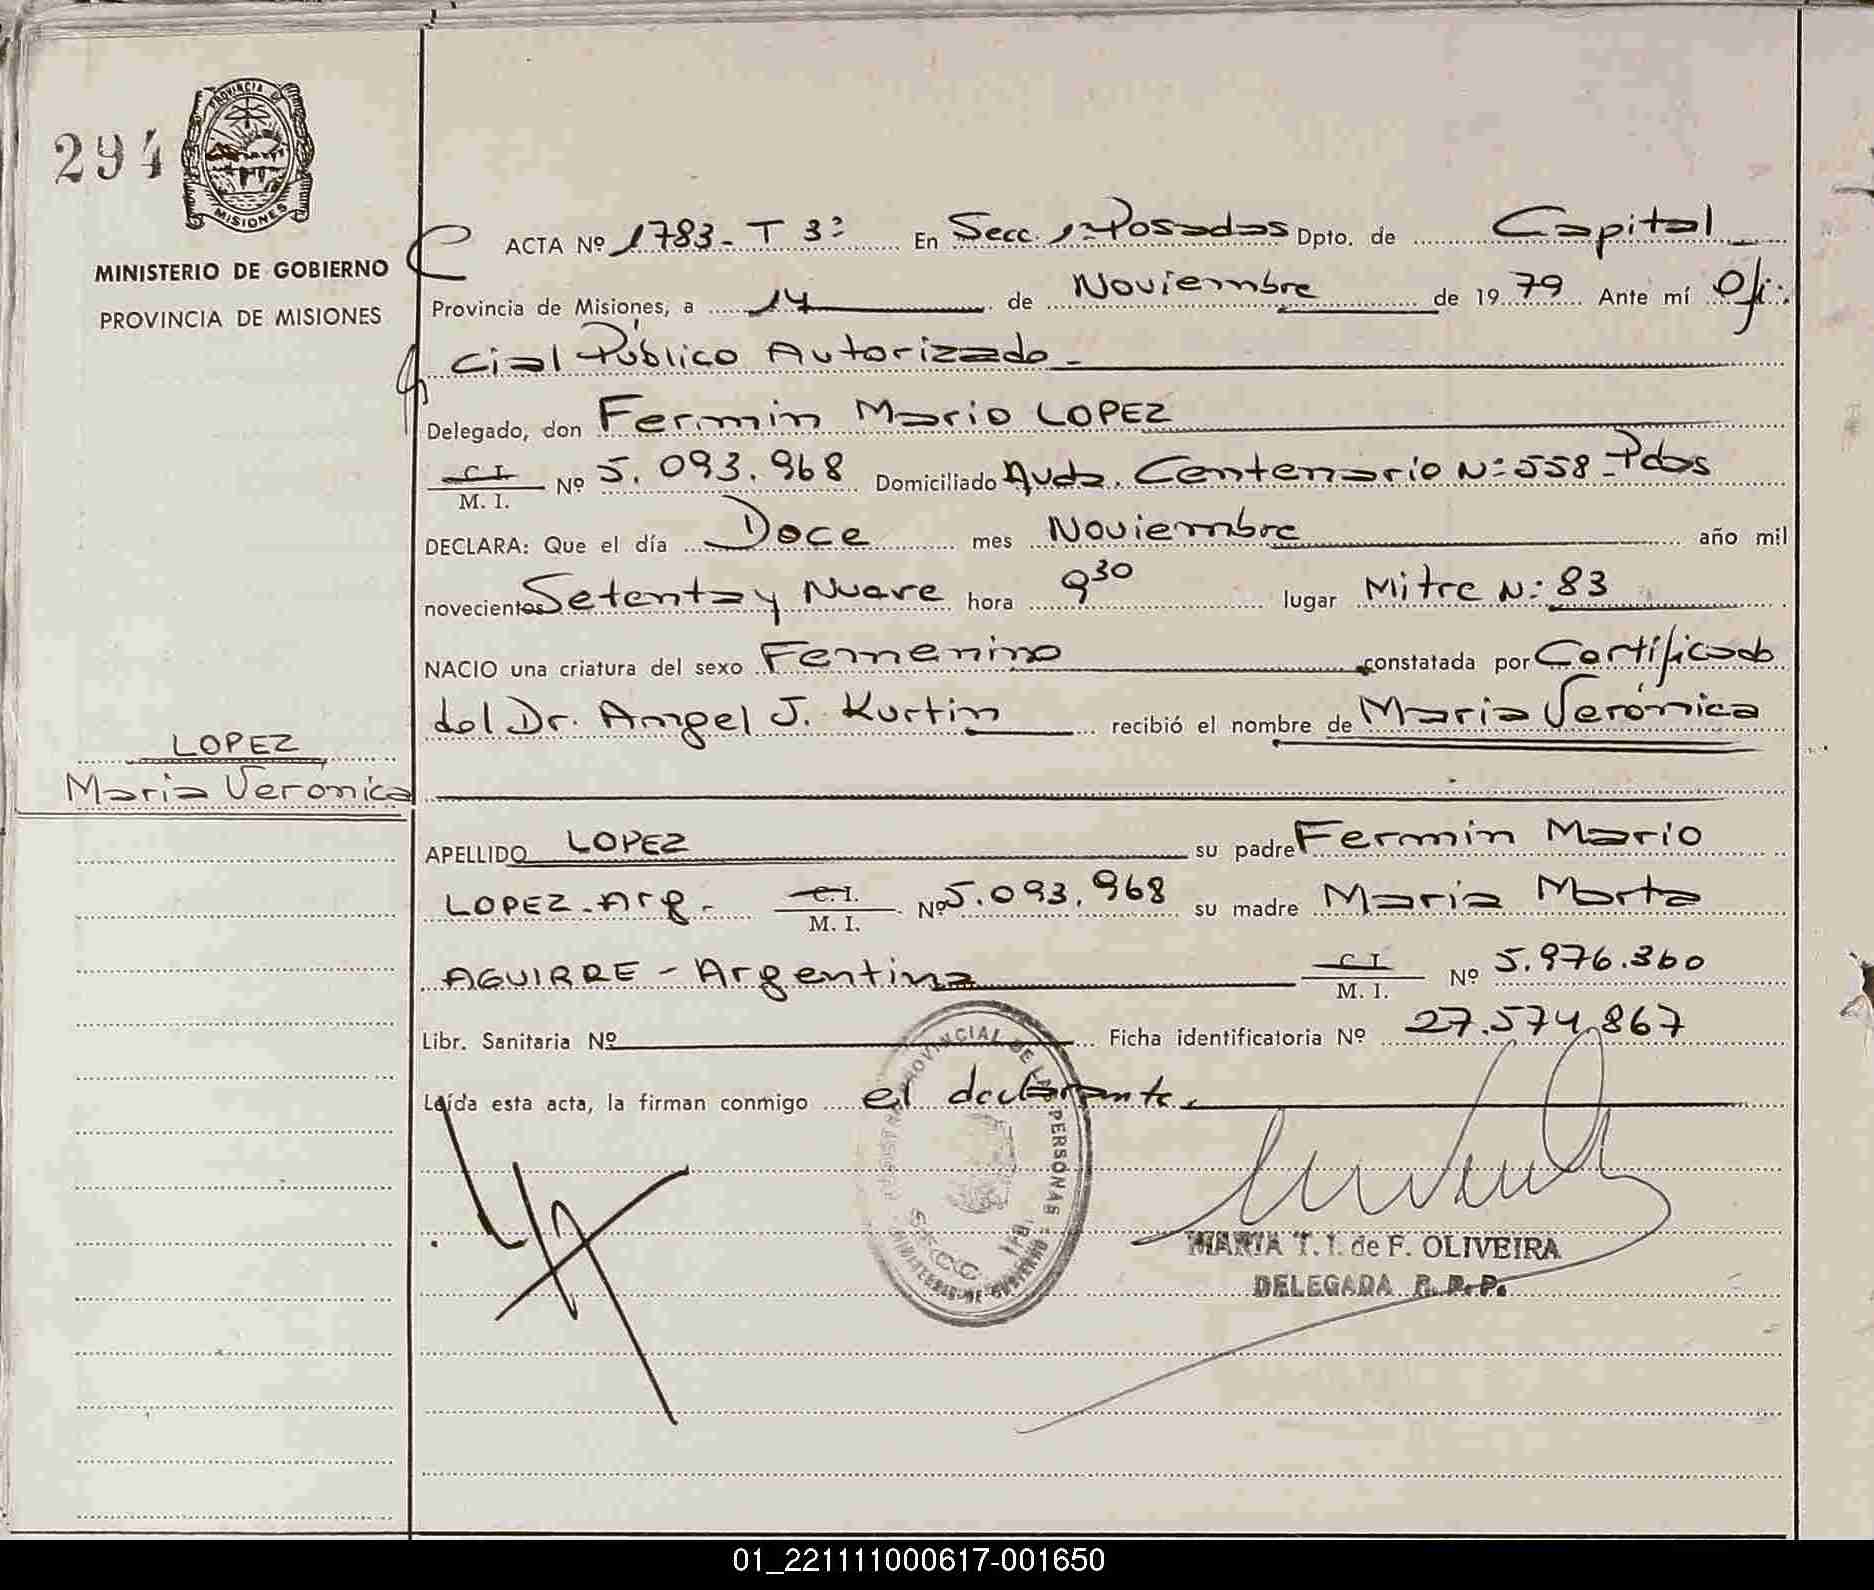 294
PROVINCIA DE
MISIONES
MINISTERIO DE GOBIERNO
PROVINCIA DE MISIONES
ACTA Nº 1783- T 3º En Secc. 1ª Posadas Dpto. de Capital
Provincia de Misiones, a 14 de Noviembre de 1979 Ante mí Ofi-
cial Público Autorizado-
Delegado, don Fermin Mario LOPEZ
C I
M. I. Nº 5.093.968 Domiciliado Avda. Centenario Nº 558-Pdas
DECLARA: Que el día Doce mes Noviembre año mil
novecientos Setenta y Nueve hora 9 30 lugar Mitre Nº 83
NACIO una criatura del sexo Femenino constatada por Certificado
del Dr. Angel J. Kurtin recibió el nombre de Maria Verónica
LOPEZ
Maria Verónica
APELLIDO LOPEZ su padre Fermin Mario
LOPEZ-Arg. C. I.
M. I. Nº 5.093.968 su madre Maria Marta
AGUIRRE - Argentina C I
M. I. Nº 5.976.360
Libr. Sanitaria Nº Ficha identificatoria Nº 27.574.867
Leída esta acta, la firman conmigo el declarante.
PROVINCIAL DE LAS PERSONAS
SECC 1ª
MINISTERIO DE GOBIERNO
MARIA T. I. de F. OLIVEIRA
DELEGADA R. P. P.
01_221111000617-001650